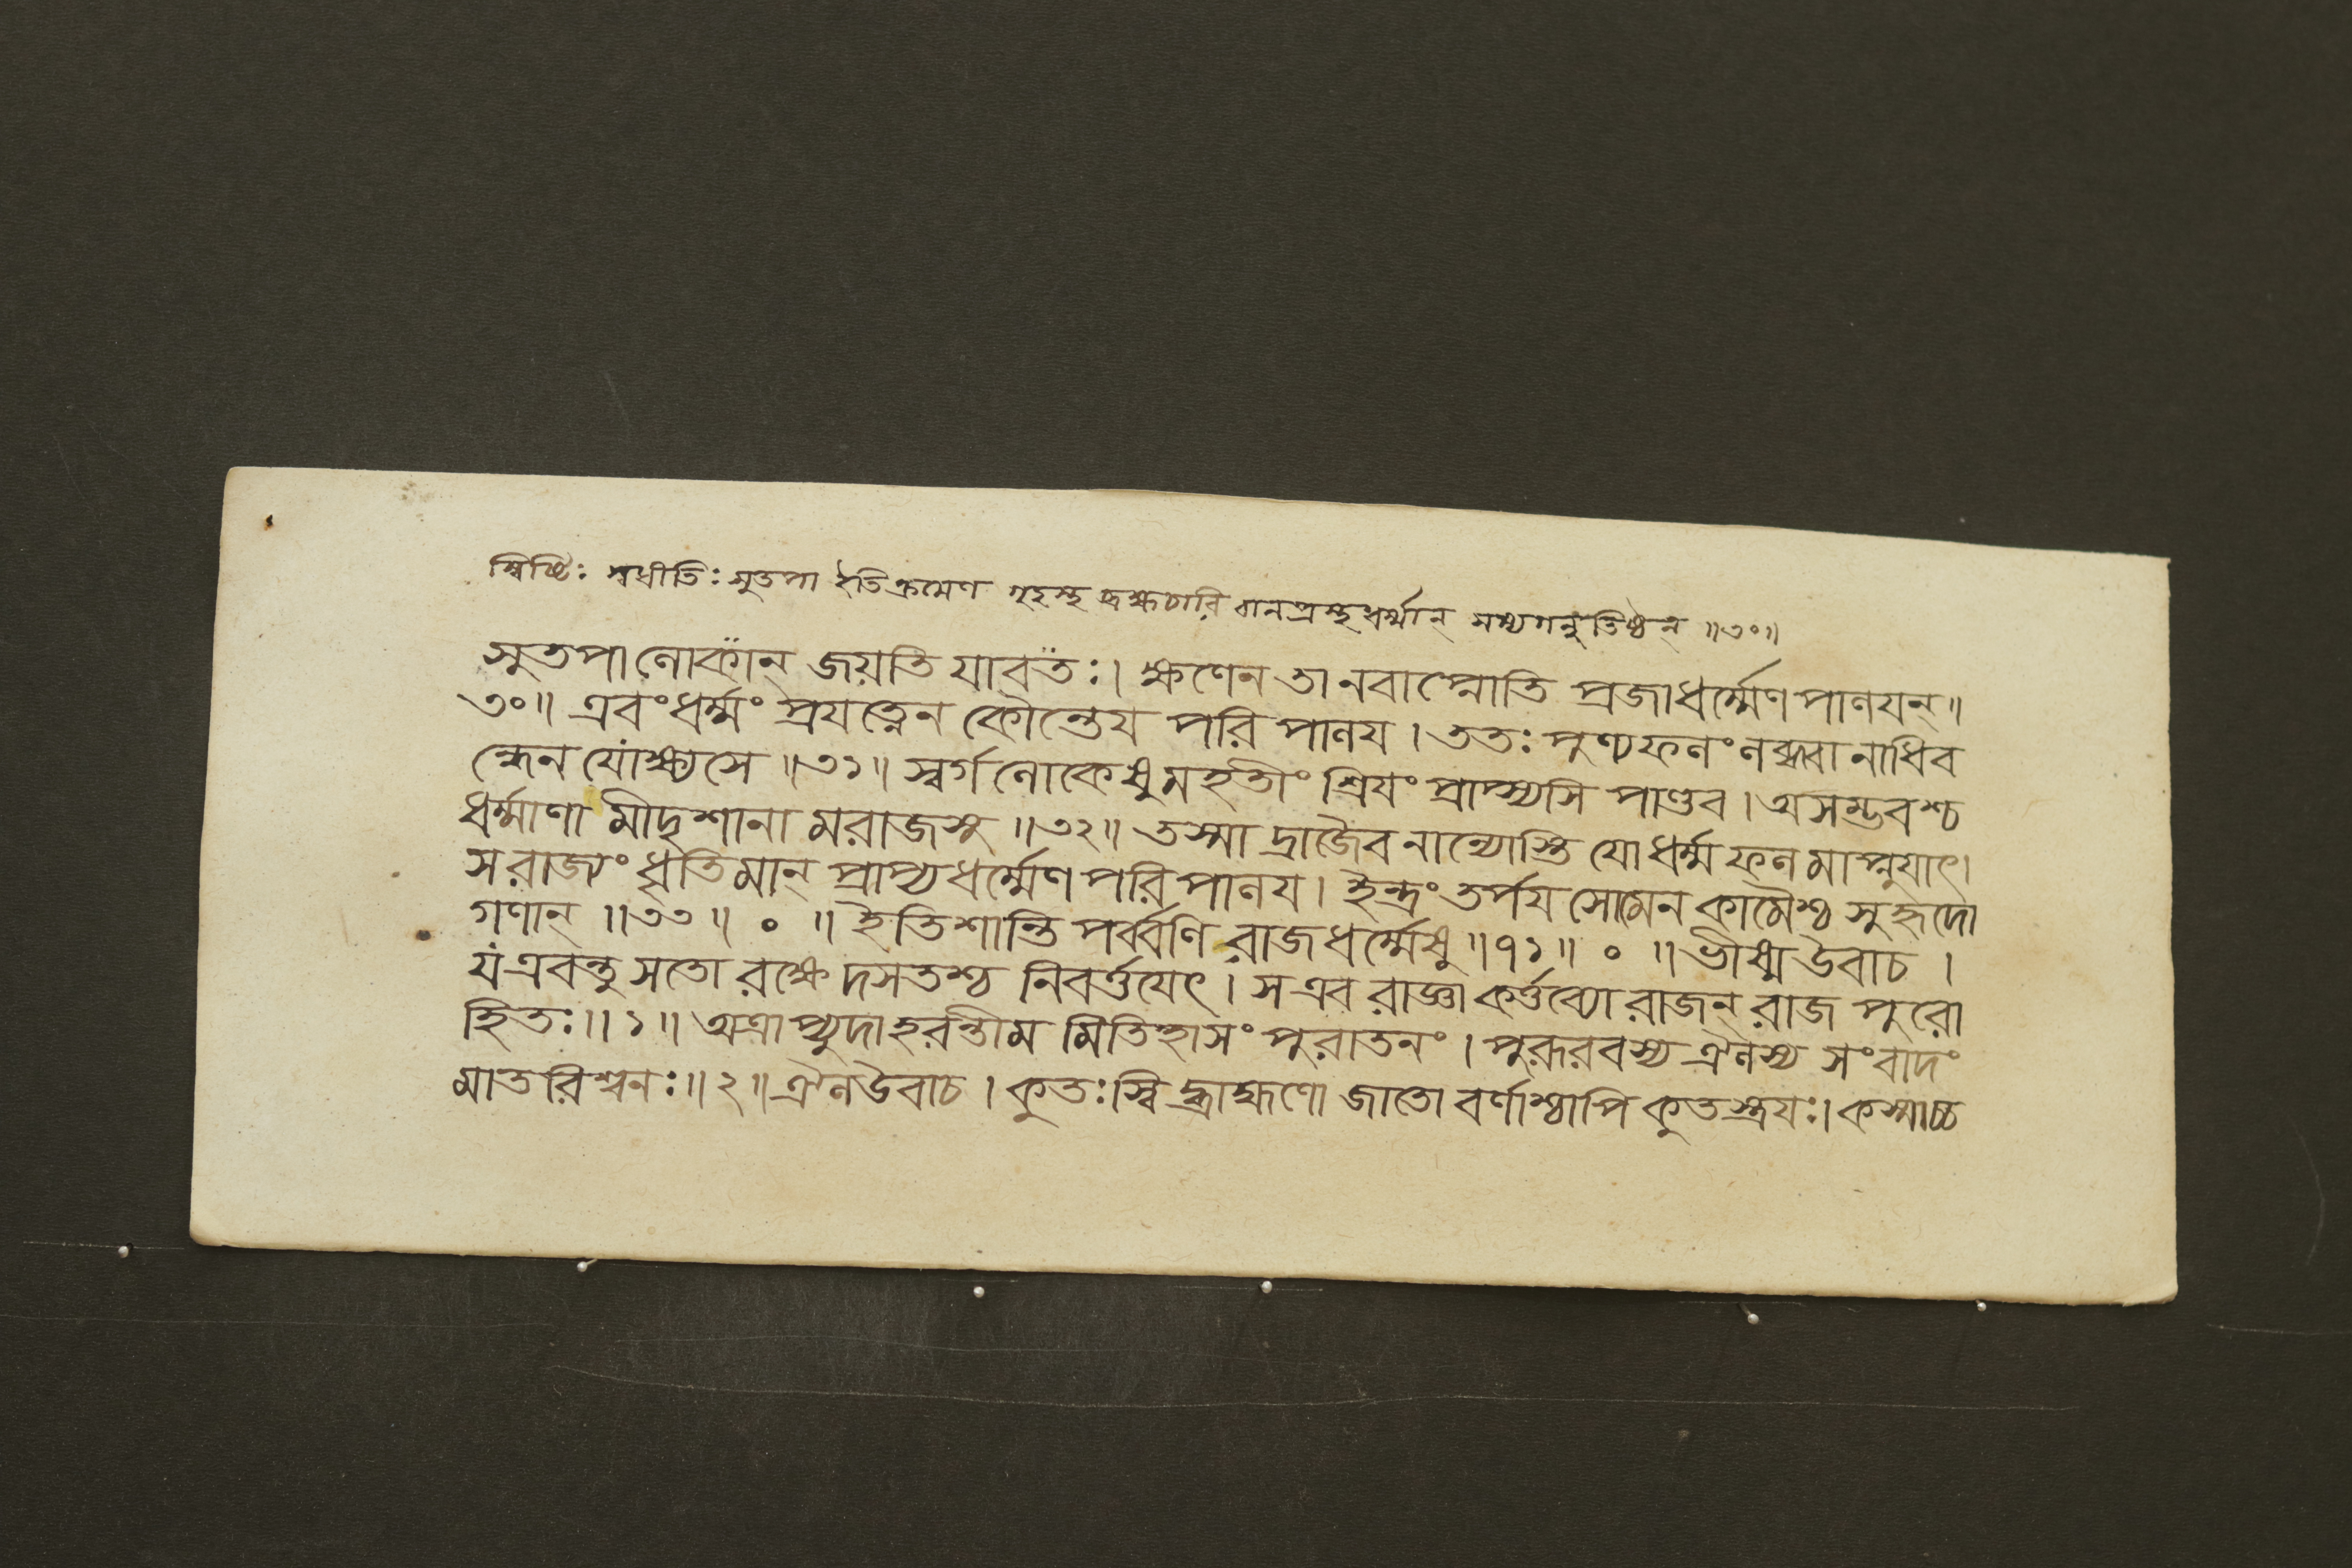 স্বিষ্টিঃ স্বধীতিঃ সুতপা ইতিক্রমেণ গৃহস্থ ব্রহ্মচারি বানপ্রস্থধর্ম্মান্ সম্যগনুতিষ্ঠন্ ॥৩০॥
সুতপা লোকান্ জয়তি যাবতঃ। ক্ষণেন তানবাপ্নোতি প্রজাধর্ম্মেণ পালযন্॥
৩০॥ এবংধর্ম্মং প্রযত্নেন কৌন্তেয পরি পালয । ততঃ পুণ্যফলং লব্ধ্বা নাধিব
ন্ধেন যোক্ষ্যসে ॥৩১॥ স্বর্গ লোকেষুমহতীং শ্রিযং প্রাপ্স্যসি পাণ্ডব । অসম্ভবশ্চ
ধর্ম্মাণা মীদৃশানা মরাজসু ॥৩২॥ তস্মা দ্রাজৈব নান্যোস্তি যো ধর্ম্ম ফল মাপ্নুযাৎ।
স রাজ্যং ধৃতিমান্ প্রাপ্য ধর্ম্মেণ পরি পালয । ইন্দ্রং তর্পয সোমেন কামৈশ্চ সুহৃদো
গণান্ ॥৩৩॥ ০ ॥ ইতি শান্তি পর্ব্বণি রাজধর্ম্মেষু ॥৭১॥ ০ ॥ ভীষ্ম উবাচ ।
য এবন্তু সতো রক্ষে দসতশ্চ নিবর্ত্তযেৎ । স এব রাজ্ঞা কর্ত্তব্যো রাজন্ রাজ পুরো
হিতঃ॥১॥ অত্রাপ্যুদাহরন্তীম মিতিহাসং পুরাতনং । পুরূরবস্য ঐলস্য সংবাদং
মাতরিশ্বনঃ॥২॥ ঐল উবাচ । কুতঃ স্বি দ্ব্রাহ্মণো জাতো বর্ণাশ্চাপি কুতস্ত্রযঃ। কস্মাচ্চ